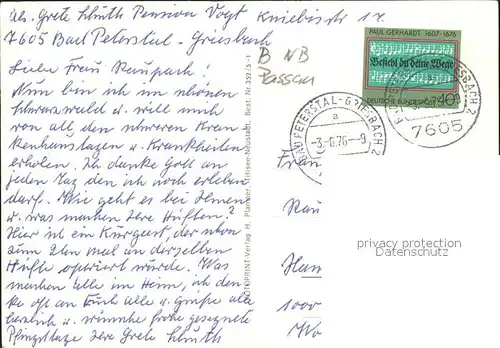 Abs. Grete Schuth Pension Vogt Kniebisstr 17
7605 Bad Peterstal-Griesbach
Liebe Frau Raupach!
Nun bin ich im schönen
Schwarzwald u. will mich
von all den schweren Kran
kenhaustagen u. Krankheiten
erholen. Ich danke Gott an
jeden Tag den ich noch erleben
darf. Wie geht es bei Ihnen
u. was machen Ihre Hüften?
Hier ist ein Kurgast, der schon
zum 2ten mal an derselben
Hüfte operiert wurde. Was
machen alle im Heim, ich den
ke oft an Euch alle u. grüße alle
herzlich u. wünsche frohe gesegnete
Pfingsttage Ihre Grete Schuth
B NB
Passau
FOTOPRINT-Verlag H. Titisee-Neustadt. Best. Nr.
PAUL GERHARDT 1607-1676
Befiehl du deine Wege
DEUTSCHE BUNDESPOST 40
BAD PETERSTAL-GRIESBACH 2
a
-3.-6.76-9
7605
Frau
Rau
Ham
1000
privacy protection
Datenschutz